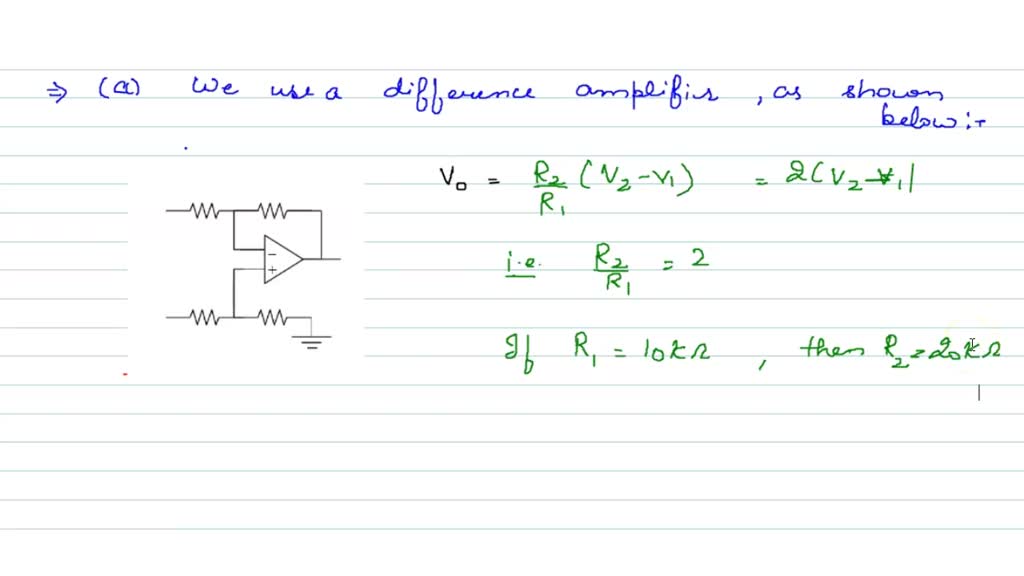 ⇒ (a) We use a difference amplifier, as shown
below:-
V₀ = R₂/R₁ (V₂-V₁) = 2(V₂-V₁)
i.e. R₂/R₁ = 2
If R₁ = 10kΩ, then R₂=20kΩ
−
+